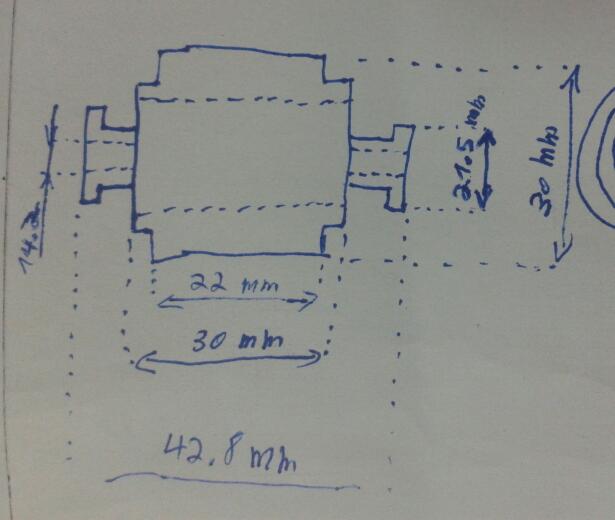 21.5 mm
30 mm
14.2
22 mm
30 mm
42.8 mm